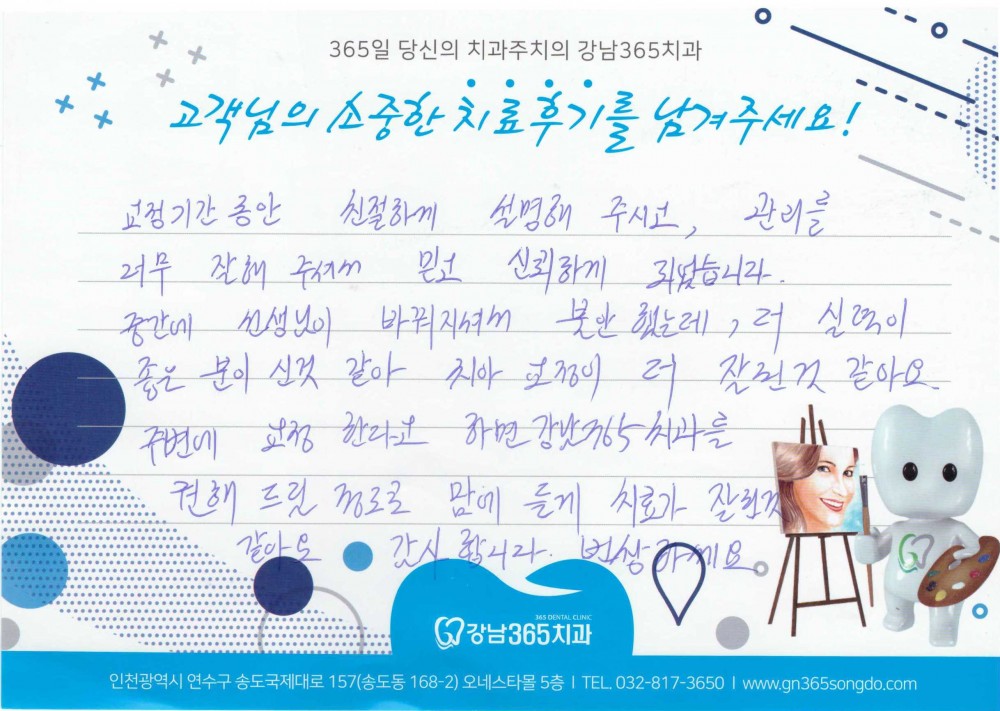 365일 당신의 치과주치의 강남365치과
고객님의 소중한 치료후기를 남겨주세요!
교정기간 동안 친절하게 설명해 주시고, 관리를
너무 잘해 주셔서 믿고 신뢰하게 되었습니다.
중간에 선생님이 바뀌지셔서 불안 했는데, 더 실력이
좋은 분이 신것 같아 치아 교정이 더 잘된것 같아요.
주변에 교정 한다고 하면 강남365치과를
권해 드릿 정도로 맘에 들게 치료가 잘된것
같아요 감사 합니다. 번창하세요
365 DENTAL CLINIC
강남365치과
인천광역시 연수구 송도국제대로 157(송도동 168-2) 오네스타몰 5층 | TEL. 032-817-3650 | www.gn365songdo.com